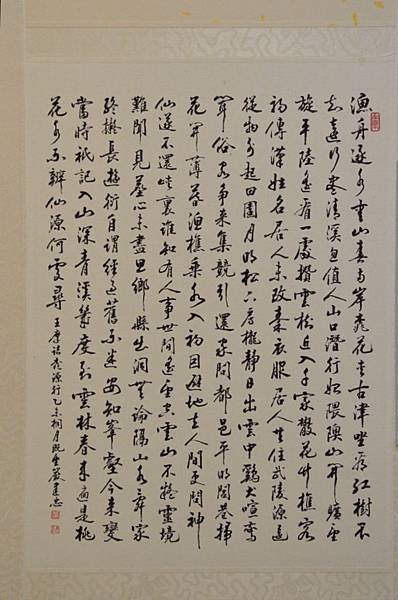 漁舟逐水愛山春兩岸桃花夾古津坐看紅樹不
知遠行盡清溪忽值人山口潛行始隈隩山開曠望
旋平陸遙看一處攢雲松近入千家散花竹樵客
初傳漢姓名居人未改秦衣服居人共住武陵源還
從物外起田園月明松下房櫳靜日出雲中鷄犬喧驚
聞俗客爭來集競引還家問都邑平明閭巷掃
花開薄暮漁樵乘水入初因避地去人間更問神
仙遂不還峽裏誰知有人事世間遙望空雲山不疑靈境
難聞見塵心未盡思鄉縣出洞無論隔山水辭家
終擬長遊衍自謂經過舊不迷安知峯壑今來變
當時祇記入山深青溪幾度到雲林春來遍是桃
花水不辨仙源何處尋 王摩詰桃源行乙未桐月既望